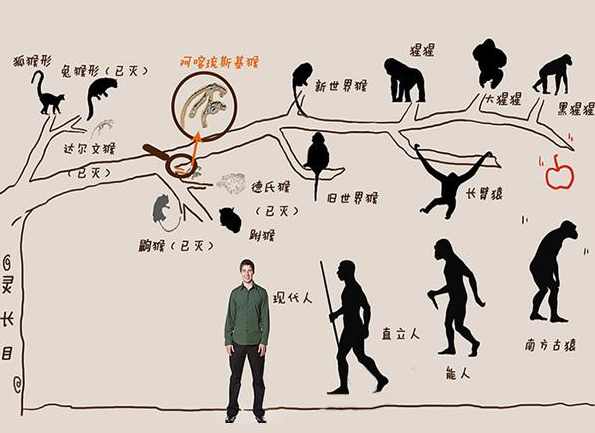 狐猴形
兔猴形（已灭）
达尔文猴
（已灭）
阿喀琉斯基猴
新世界猴
猩猩
大猩猩
黑猩猩
德氏猴
（已灭）
鼩猴（已灭）
跗猴
旧世界猴
长臂猿
灵长目
现代人
直立人
能人
南方古猿